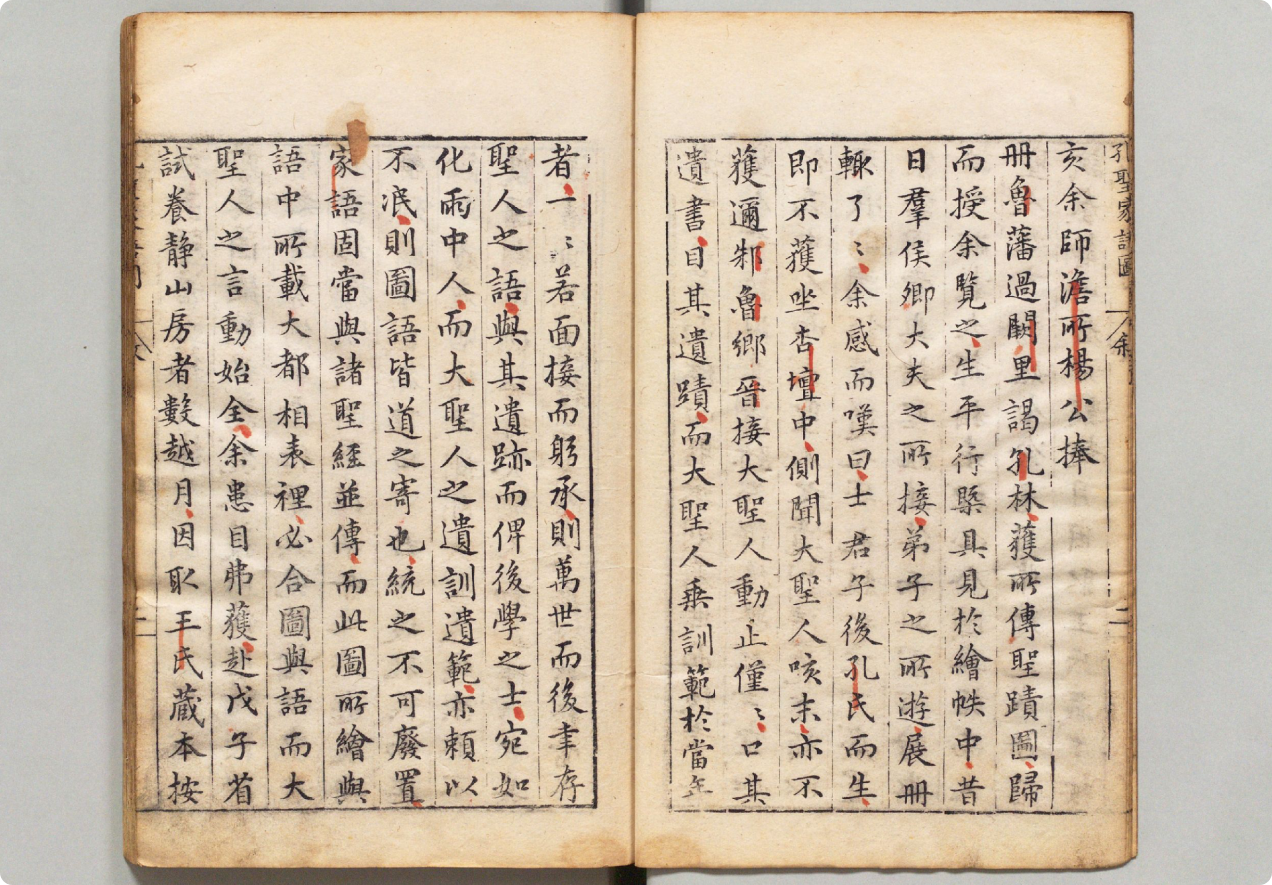 孔聖家語圖
二
亥余師澹所楊公捧
冊魯藩過闕里謁孔林獲所傳聖蹟圖歸
而授余覽之生平行槩具見於繪帙中昔
日羣侯卿大夫之所接弟子之所遊展冊
輙了〻余感而嘆曰士君子後孔氏而生
即不獲坐杏壇中側聞大聖人咳末亦不
獲邇邾魯鄉晉接大聖人動止僅〻口其
遺書目其遺蹟而大聖人垂訓範於當年
者一〻若面接而躬承則萬世而後幸存
聖人之語與其遺跡而俾後學之士宛如
化雨中人而大聖人之遺訓遺範亦賴以
不泯則圖語皆道之寄也統之不可廢置
家語固當與諸聖經並傳而此圖所繪與
語中所載大都相表裡必合圖與語而大
聖人之言動始全余患目弗獲赴戊子省
試養静山房者數越月因取王氏蔵本按